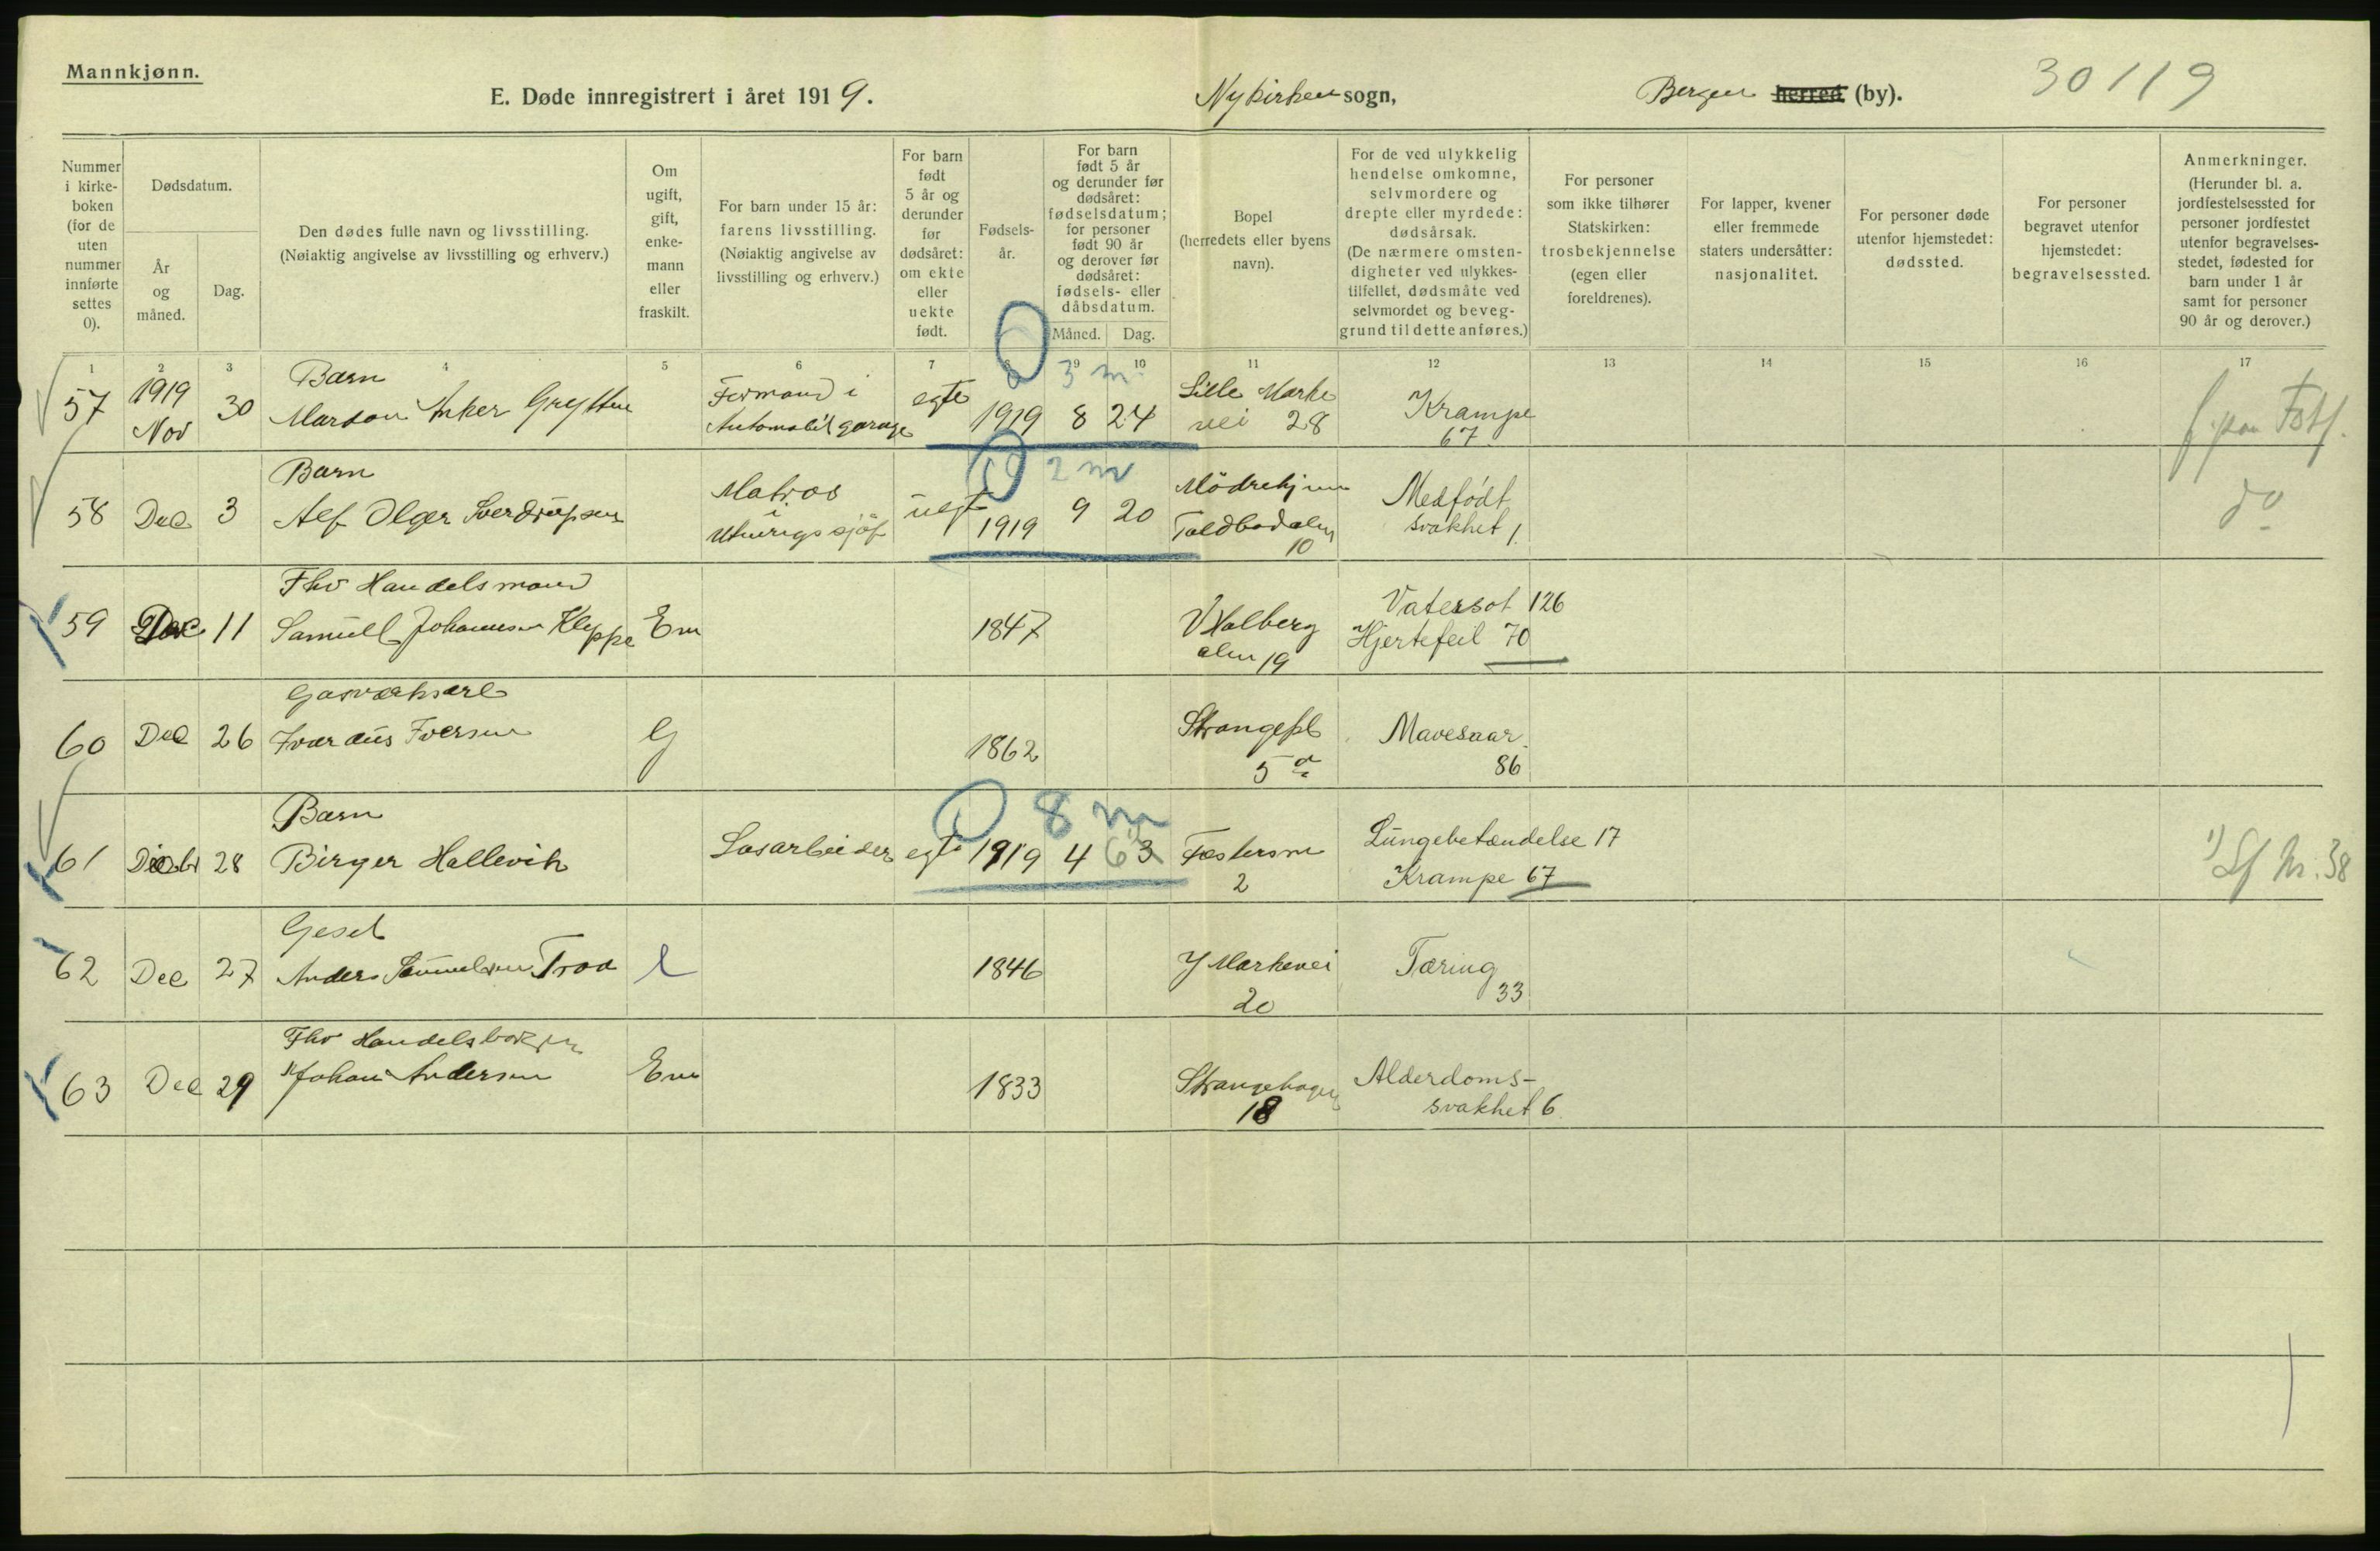 Mannkjønn.
E. Døde innregistrert i året 1919.
Nykirken sogn,
Bergen herred (by).
30119
Nummer i kirke-boken (for de uten nummer innførte settes 0).
Dødsdatum.
År og måned.
Dag.
Den dødes fulle navn og livsstilling.
(Nøiaktig angivelse av livsstilling og erhverv.)
Om ugift, gift, enke-mann eller fraskilt.
For barn under 15 år: farens livsstilling.
(Nøiaktig angivelse av livsstilling og erhverv.)
For barn født 5 år og derunder før dødsåret: om ekte eller uekte født.
Fødsels-år.
For barn født 5 år og derunder før dødsåret: fødselsdatum; for personer født 90 år og derover før dødsåret: fødsels- eller dåbsdatum.
Måned.
Dag.
Bopel
(herredets eller byens navn).
For de ved ulykkelig hendelse omkomne, selvmordere og drepte eller myrdede: dødsårsak.
(De nærmere omsten-digheter ved ulykkes-tilfellet, dødsmåte ved selvmordet og beveg-grund til dette anføres.)
For personer som ikke tilhører Statskirken: trosbekjennelse (egen eller foreldrenes).
For lapper, kvener eller fremmede staters undersåtter: nasjonalitet.
For personer døde utenfor hjemstedet: dødssted.
For personer begravet utenfor hjemstedet: begravelsessted.
Anmerkninger.
(Herunder bl. a. jordfestelsessted for personer jordfestet utenfor begravelses-stedet, fødested for barn under 1 år samt for personer 90 år og derover.)
1 2 3 4 5 6 7 8 9 10 11 12 13 14 15 16 17
3 m
57 1919 Nov 30 Barn
Anker Grytten
Formand i Automobilgarage
egte 1919 8 24
Lille Markevei 28
Krampe 67
2 m
58 Dec 3 Barn
Alf Olger Sverdrupsen
Matros i Utenrigs sjöf
uegt 1919 9 20
Mödrehjem
10
Medfödt svakhet 1.
do
59 Dec 11 Fhv Handelsmand
Samuel Johannesen Kleppe
Em 1847
19
Vatersot 126
Hjertefeil 70
60 Dec 26 Gasværksarb
Iversen
G 1862
Strangepl 5 a
Mavesaar.
86
8 m
61 28 Barn
Birger Hallevik
Losarbeider
egte 1919 4 3
2
Lungebetændelse 17
Krampe 67
1) Nr. 38
62 Dec 27 Gesel
Anders Samuelsen
1846
Y Markevei 20
Tæring
33
63 Dec 29 Fhv
Johan Andersen
Em 1833
Strangehagen 18
Alderdoms-
svakhet 6.